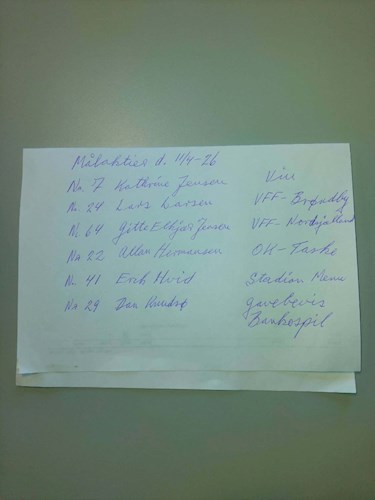 Målaktier d. 11/4-26
No. 7 Kathrine Jensen Vin
Nr. 24 Lars Larsen VFF- Brøndby
Nr. 64 Gitte Elkjær Jensen VFF- Nordsjælland
No 22 Allan Hermansen OK- Taske
Nr. 41 Erik Hvid Stadion Menu
No. 29 Dan gavebevis
Bankospil